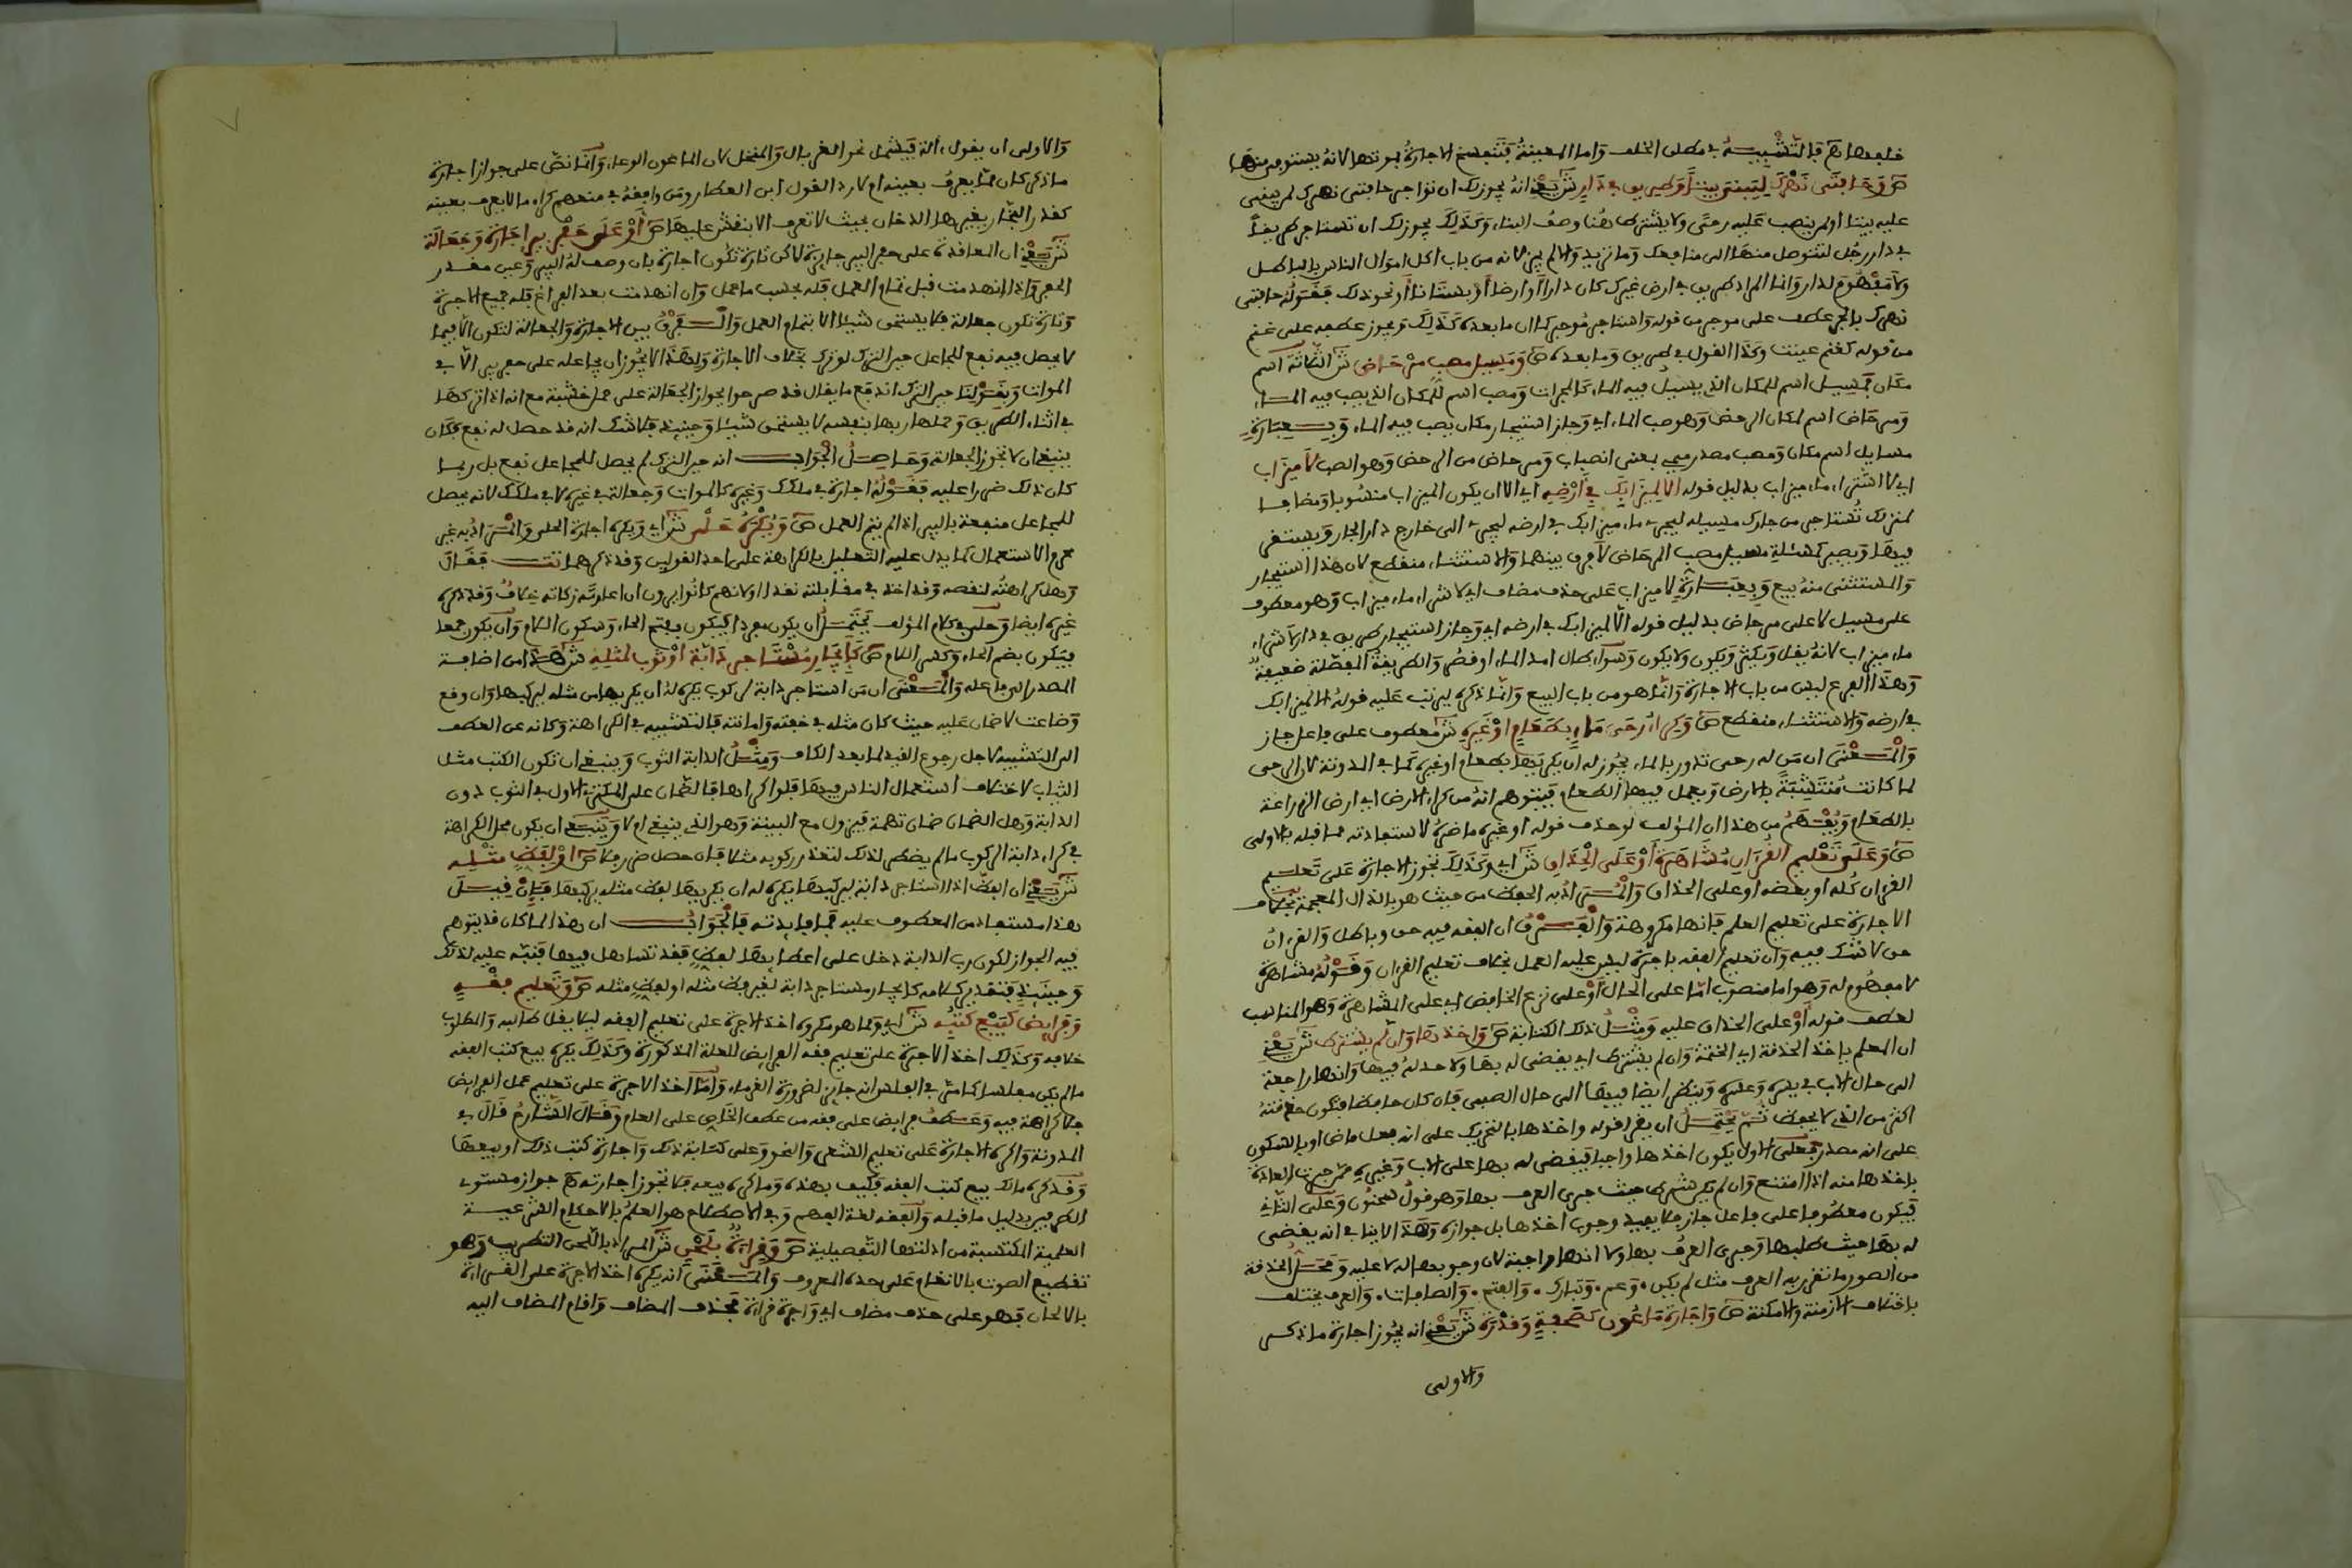 خلفها اهـ فالتشبيه في مطلق الخلف واما المعينة فتنفسخ الاجارة بموتها لانه يستوفى منها
ص وحافتي نهرك ليبني بيتا وطريق في دار ش يعني انه يجوز لك ان تؤاجر حافتي نهرك لمن يبني
عليه بيتا او لمن ينصب عليه رحى ولا يشترط هنا وصف البناء وكذلك يجوز لك ان تستاجر طريقا
في دار رجل لتتوصل منها الى منافعك وما تريد والا لم يجز لانه من باب اكل اموال الناس بالباطل
ولا مفهوم لدار وانما المراد طريق في ارض غيرك كان دارا او ارضا او بستانا او نحو ذلك فقوله حافتي
نهرك بالجر عطف على موجر من قوله واستاجر موجر كما ان ما بعده كذلك ويجوز عطفه على غنم
من قوله كغنم عينت وكذا القول في طريق وما بعده ص ومسيل مصب مرحاض ش الثلاثة اسم
مكان فمسيل اسم للمكان الذي يسيل فيه الماء كالمجراة ومصب اسم للمكان الذي يصب فيه الماء
ومرحاض اسم لمكان الرحض وهو صب الماء اي وجاز استيجار مكان يصب فيه الماء وبعبارة
مسايل اسم مكان ومصب مصدر ميمي بمعنى انصباب ومرحاض من الرحض وهو الصب لا ميزاب
اي لا اشتراء ماء ميزاب بدليل قوله الا لميزابك في ارضه اي الا ان يكون الميزاب منسوبا ومضافا
لمنزلك تستاجر من جارك مسيله ليجري ماء ميزابك في ارضه ليجري الى خارج دار الجار ويستقر
فيها ويصير كمسئلة مسيل مصب المرحاض لا فرق بينهما والاستثناء منقطع لان هذا استيجار
والمستثنى منه بيع وبعبارة لا ميزاب على حذف مضاف اي لا شراء ماء ميزاب وهو معطوف
على مسيل لا على مرحاض بدليل قوله الا لميزابك في ارضه اي وجاز استيجار طريق في دار لا شراء
ماء ميزاب لانه يقل ويكثر ويكون ولا يكون وسواء طال امد الماء او قصر والطريقة المفصلة ضعيفة
وهذا الفرع ليس من باب الاجارة وانما هو من باب البيع وانما ذكره ليرتب عليه قوله الا لميزابك
في ارضه والاستثناء منقطع ص وكراء رحى ماء بطعام او غيره ش معطوف على فاعل جاز
والمعنى ان من له رحى تدور بالماء يجوز له ان يكريها بطعام او غيره كما في المدونة لان الرحى
لما كانت متشبثة بالارض ويعمل فيها الطعام فيتوهم انه من كراء الارض اي ارض الزراعة
بالطعام ويفهم من هذا ان المؤلف لو حذف قوله او غيره ما ضره لاستفادته مما قبله بالاولى
ص وعلى تعليم القران مشاهرة او على الحذاق ش اي وكذلك تجوز الاجارة على تعليم
القران كله او بعضه او على الحذاق والمراد به الحفظ من حيث هو بالذال المعجمة بخلاف
الاجارة على تعليم العلم فانها مكروهة والفرق ان الفقه فيه حق وباطل والقران
حق لا شك فيه وان تعليم الفقه باجرة ليس عليه العمل بخلاف تعليم القران وقوله مشاهرة
لا مفهوم له وهو اما منصوب اما على الحال او على نزع الخافض اي على المشاهرة وهو المناسب
لعطف قوله او على الحذاق عليه ومثل ذلك الكتابة ص واخذها وان لم يشترط ش يعني
ان المعلم ياخذ الحذقة اي الختمة وان لم يشترط اي يقضى له بها ولا حد له فيها وانها راجعة
الى حال الاب في يسره وعسره وينظر ايضا فيها الى حال الصبي فان كان حافظا فتكون حذقته
اكثر من الذي لا يحفظ ثم يحتمل ان يقرا قوله واخذها بالتحريك على انه فعل ماض او بالسكون
على انه مصدر فعلى الاول يكون اخذها واجبا فيقضى له بها على الاب وغيره ممن جرت العادة
باخذها منه اذا امتنع وان لم يكن شرط حيث جرى العرف بها وهو قول سحنون وعلى الثاني
فيكون معطوفا على فاعل جاز فلا يفيد وجوب اخذها بل جوازه وهذا لا ينافي انه يقضى
له بها حيث طلبها وجرى العرف بها ولا انها واجبة لان وجوبها له لا عليه ومحل الحذقة
من الصور ما تقرر به العرف مثل لم يكن وعم وتبارك والفتح والصافات والعرف يختلف
باختلاف الازمنة والامكنة ص واجارة ماعون كصحفة وقدرة ش يعني انه يجوز اجارة ما ذكر
والاولى
والاولى ان يقول ءالة فيشمل نحو الغربال والمنخل لان الماعون الوعاء وانما نص على جواز اجارة
ما ذكر كان مما يعرف بعينه ام لا ردا لقول ابن العطار ومن وافقه في منعهم كراء ما لا يعرف بعينه
كقدر الفخار يغيرها الدخان بحيث لا تعرف الا بنقش عليها ص او على حفر بير اجارة وجعالة
ش يعني ان المعاقدة على حفر البير جايزة لاكن تارة تكون اجارة بان وصف له البير وعين مقدر
الحفر واذا انهدمت قبل تمام العمل فله بحسب ما عمل وان انهدمت بعد الفراغ فله جميع الاجرة
وتارة تكون جعالة فلا يستحق شيئا الا بتمام العمل والفرق بين الاجارة والجعالة لا تكون الا فيما
لا يحصل فيه نفع للجاعل حين الترك لو ترك بخلاف الاجارة ولهذا لا يجوز ان يجاعله على حفر بير الا في
الموات وبقولنا حين الترك اندفع ما يقال قد صرحوا بجواز الجعالة على حمل خشبة مع انه اذا تركها
في اثناء الطريق وحملها ربها بنفسه لا يستحق شيئا وحينيذ فلا شك انه قد حصل له نفع فكان
ينبغي ان لا تجوز الجعالة وحاصل الجواب انه حين الترك لم يحصل للجاعل نفع بل ربما
كان ذلك ضررا عليه فقوله اجارة في ملكك وغيره كالموات وجعالة في غيره لا في ملكك لانه يحصل
للجاعل منفعة بالبير اذا لم يتم العمل ص ويكره حلي ش اي ويكره اجارة الحلي والمراد به غير
محرم الاستعمال كما يدل عليه التعليل بالكراهة على احد القولين وقد ذكرهما تت فقال
وهل كراهته لنقصه وقد اخذ في مقابلته نقدا او لانهم كانوا يرون ان اعارته زكاته خلاف وقد ذكره
غيره ايضا وحلي في كلام المؤلف يحتمل ان يكون مفردا فيكون بفتح الحاء وسكون اللام وان يكون جمعا
فيكون بضم الحاء وكسر اللام ص كايجار مستاجر دابة او ثوب لمثله ش هذا من اضافة
المصدر الى فاعله والمعنى ان من استاجر دابة لركوب يكره له ان يكريها من مثله ليركبها وان وقع
وضاعت لا ضمان عليه حيث كان مثله في خفته وامانته فالتشبيه في الكراهة وكانه عن العطف
الى التشبيه لاجل رجوع القيد لما بعد الكاف ومثل الدابة الثوب وينبغي ان تكون الكتب مثل
الثياب لاختلاف استعمال الناس فيها فلو اكراها فالضمان على المكتري الاول في الثوب دون
الدابة وهل الضمان ضمان تهمة فيزول مع البينة وهو الذي ينبغي ام لا وينبغي ان يكون محل الكراهة
في كراء دابة الركوب ما لم يضطر لذلك لتعذر ركوبه مثلا فان حصل ضرر فلا ص او لفظ مثله
ش يعني ان الفظ اذا استاجر دابة ليركبها يكره له ان يكريها لفظ مثله يركبها فان قيل
هذا مستفاد من المعطوف عليه فما فايدته فالجواب ان هذا لما كان قد يتوهم
فيه الجواز لكون رب الدابة دخل على اعطايها لفظ فقد تساهل فيها فنبه عليه لذلك
وحينيذ فتقدير كلامه كايجار مستاجر دابة لغير فظ مثله او لفظ مثله ص وتعليم فقه
وفرايض كبيع كتبه ش اي ومما هو مكروه اخذ الاجرة على تعليم الفقه ليلا يقل طالبه والمطلوب
خلافه وكذلك اخذ الاجرة على تعليم فقه الفرايض للعلة المذكورة وكذلك يكره بيع كتب الفقه
ما لم يكن مفلسا كما مر في الفلس انه جايز لضرورة الغرماء واما اخذ الاجرة على تعليم عمل الفرايض
فلا كراهة فيه وعطف فرايض على فقه من عطف الخاص على العام وقال الشارح قال في
المدونة واكره الاجارة على تعليم الشعر والنحو وعلى كتابة ذلك واجارة كتب ذلك او بيعها
وقد كره مالك بيع كتب الفقه فكيف بهذه وما كره بيعه فلا تجوز اجارته اهـ جواز مستوي
الطرفين بدليل ما قبله والفقه لغة الفهم وفي الاصطلاح هو العلم بالاحكام الشرعية
العلمية المكتسبة من ادلتها التفصيلية ص وقراءة بلحن ش المراد باللحن التطريب وهو
تقطيع الصوت بالانغام على حده المعروف والمعنى انه يكره اخذ الاجرة على القراءة
بالالحان فهو على حذف مضاف اي واجرة قراءة فحذف المضاف واقام المضاف اليه